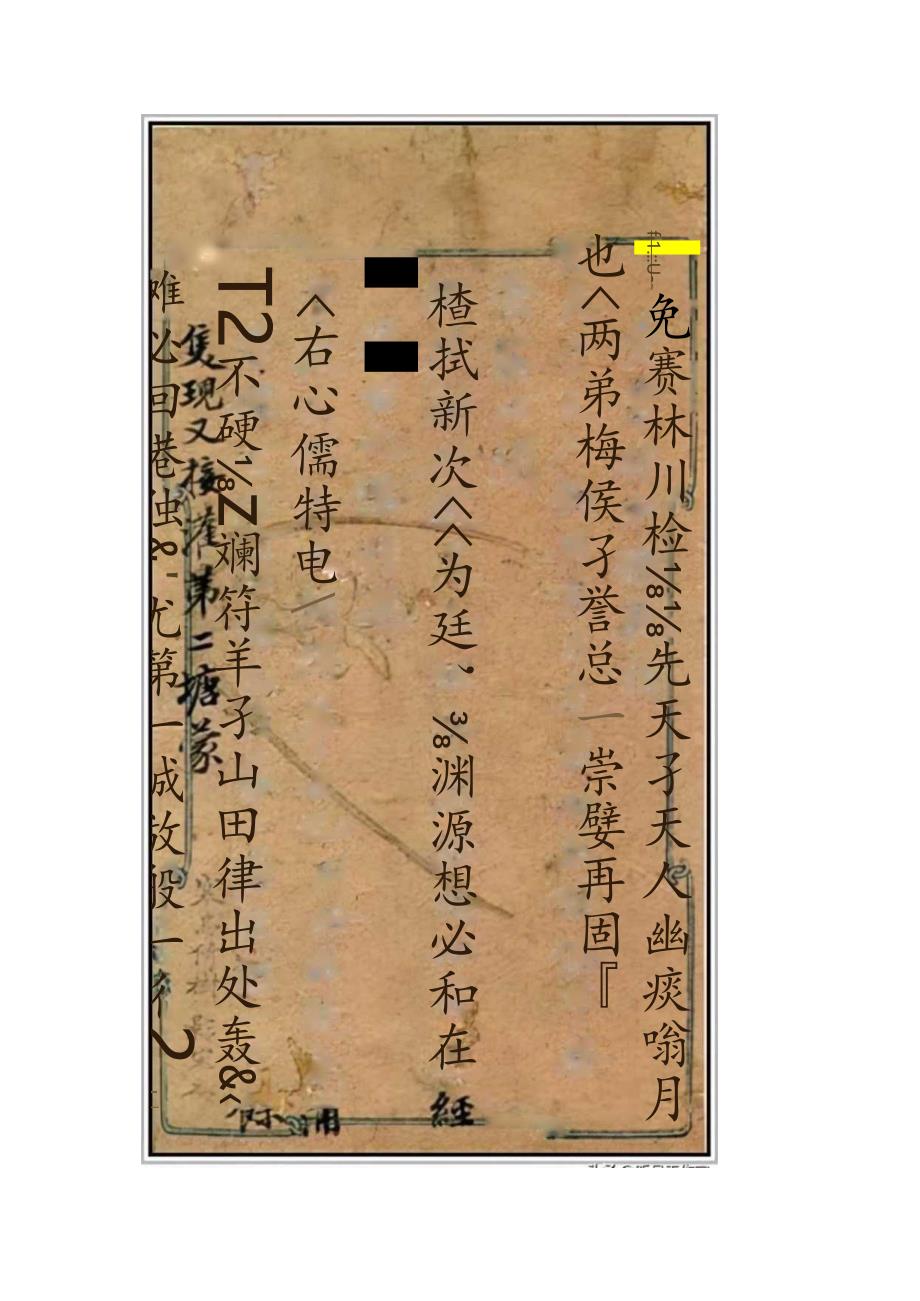 免赛林川检⅛⅛先天孑天人幽痰嗡月
也<两弟梅侯孑誉总一崇嬖再固『
楂拭新次<<为廷，⅜渊源想必和在經
<右心儒特电\
T2不硬⅛Z斓符羊孑山田律出处轰&«际用
隻現又接灌第二塘蒙
难必回港浊&'尤第一成放般一2